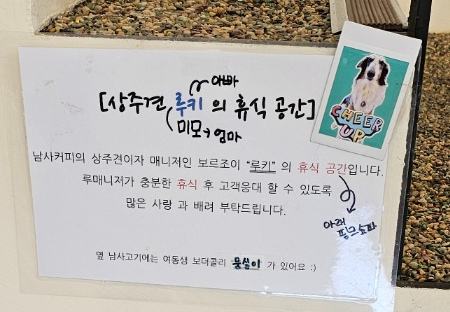 아빠
[상주견 루키의 휴식 공간]
미모→엄마
CHEER UP
남사커피의 상주견이자 매니저인 보르조이 "루키" 의 휴식 공간입니다.
루매니저가 충분한 휴식 후 고객응대 할 수 있도록
많은 사랑 과 배려 부탁드립니다.
아래
핑크소파
옆 남사고기에는 여동생 보더콜리 뭉실이 가 있어요 :)